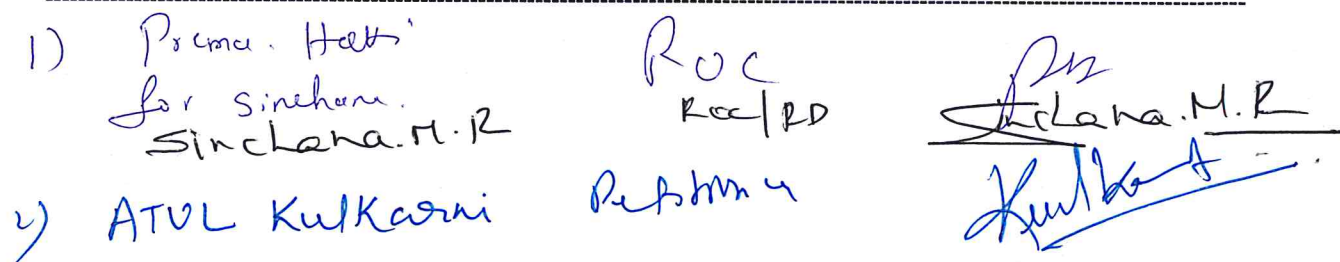 1) Prema. Hatti ROC
for Sinchana.
Sinchana.M.R ROC/RD Sinchana.M.R
2) ATUL Kulkarni Petitioner Kulkarni